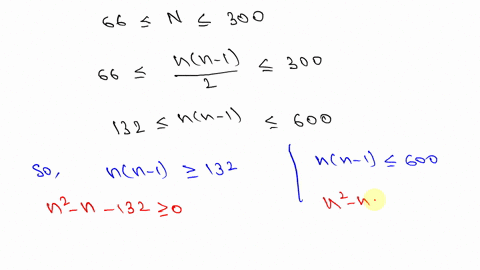 66 ≤ N ≤ 300
66 ≤ n(n-1)/2 ≤ 300
132 ≤ n(n-1) ≤ 600
So, n(n-1) ≥ 132
n²-n-132 ≥ 0
n(n-1) ≤ 600
n²-n